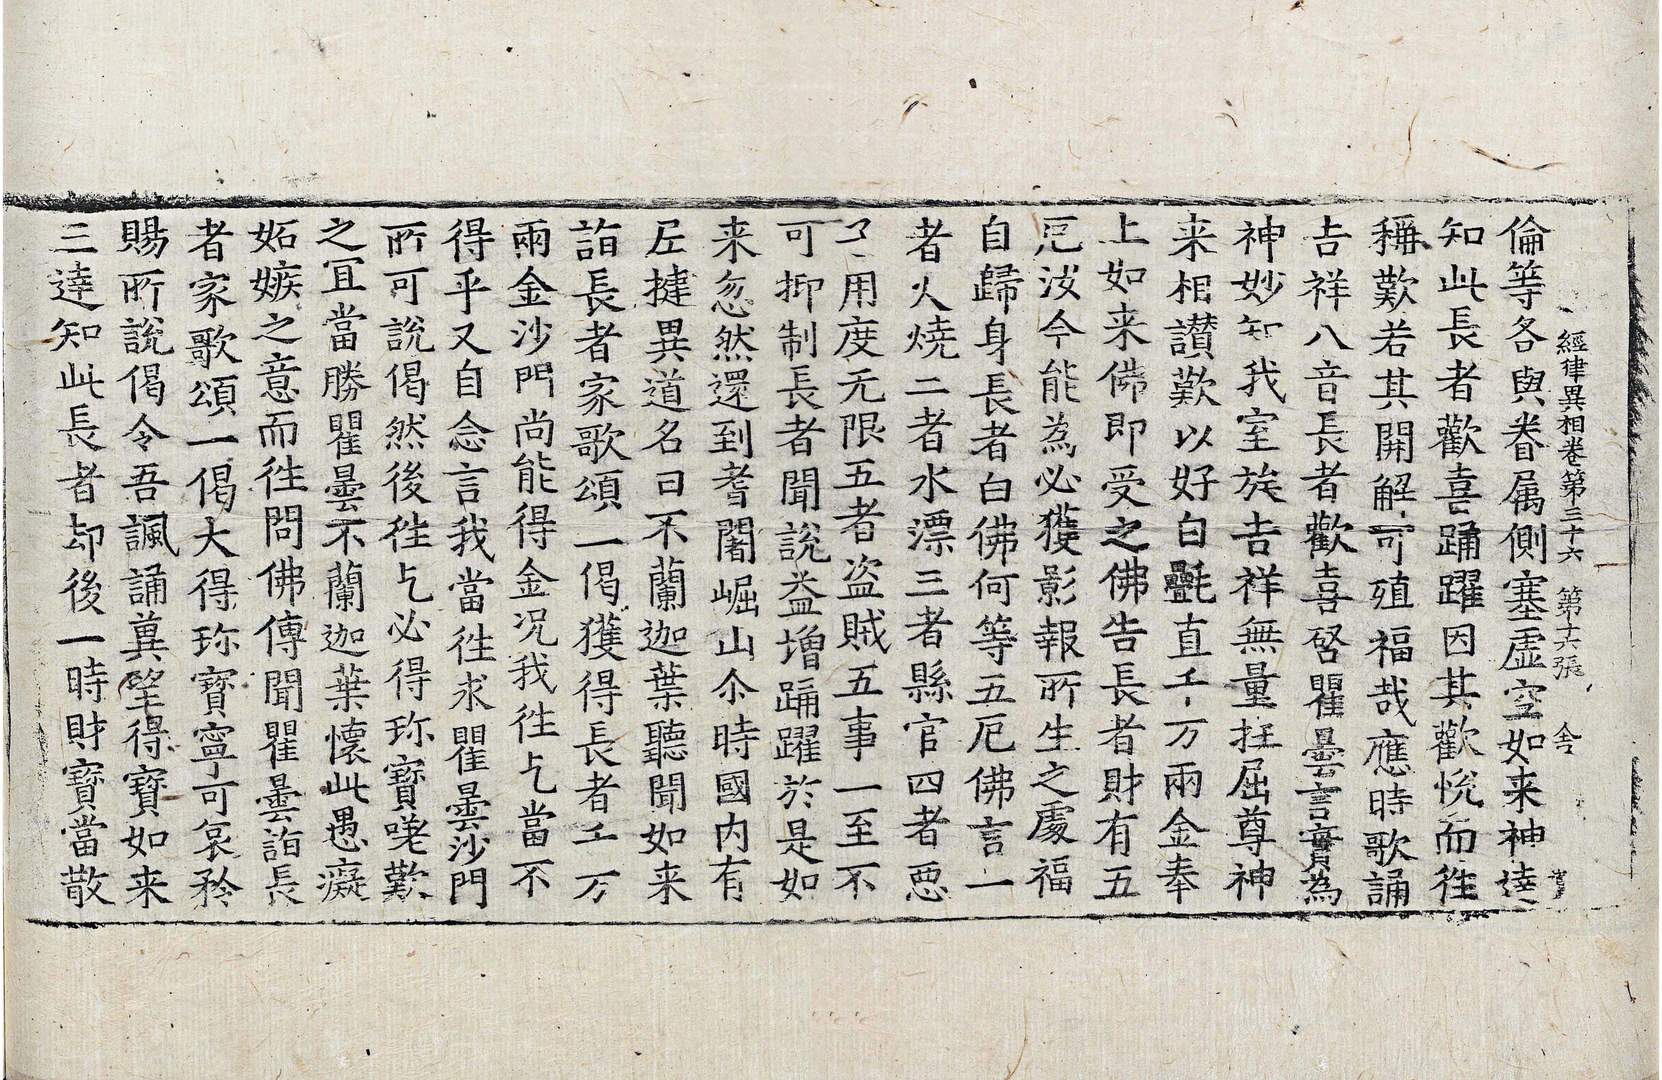 經律異相卷第三十六 第十六張 㒰
倫等各與眷属側塞虛空如来神逹
知此長者歡喜踊躍因其歡悅而徃
稱歎若其開解可殖福哉應時歌誦
吉祥八音長者歡喜啓瞿曇言實為
神妙知我室族吉祥無量抂屈尊神
来相讃歎以好白㲲直千万兩金奉
上如来佛即受之佛告長者財有五
厄汝今能為必獲影報所生之處福
自歸身長者白佛何等五厄佛言一
者火燒二者水漂三者縣官四者惡
子用度无限五者盗賊五事一至不
可抑制長者聞說益增踊躍於是如
来忽然還到耆闍崛山尒時國内有
尼揵異道名曰不蘭迦葉聽聞如来
詣長者家歌頌一偈獲得長者千万
兩金沙門尚能得金况我徃乞當不
得乎又自念言我當徃求瞿曇沙門
所可說偈然後徃乞必得珎寶嗟歎
之冝當勝瞿曇不蘭迦葉懐此愚癡
妬嫉之意而徃問佛傳聞瞿曇詣長
者家歌頌一偈大得珎寶寧可哀矜
賜所說偈令吾諷誦兾望得寶如来
三達知此長者却後一時財寶當散